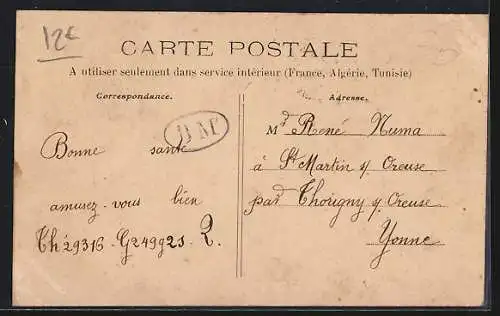 12€
CARTE POSTALE
A utiliser seulement dans service intérieur (France, Algérie, Tunisie)
Correspondance.
Adresse.
BM
Md René Numa
à St Martin s/ Oreuse
par Thorigny s/ Oreuse
Yonne
Bonne santé
amusez-vous bien
Th29316-G249g2s